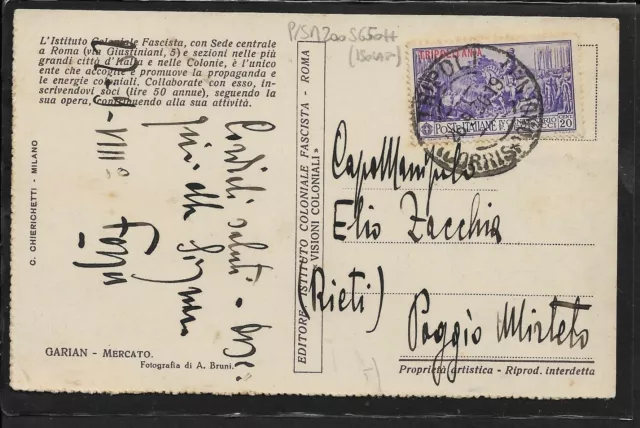 L'Istituto Coloniale Fascista, con Sede centrale
a Roma (via Giustiniani, 5) e sezioni nelle più
grandi città d'Italia e nelle Colonie, è l'unico
ente che accoglie e promuove la propaganda e
le energie coloniali. Collaborate con esso, in-
scrivendovi soci (lire 50 annue), seguendo la
sua opera, contribuendo alla sua attività.
C. CHIERICHETTI - MILANO
Cordiali saluti
GARIAN - MERCATO.
Fotografia di A. Bruni.
EDITORE ISTITUTO COLONIALE FASCISTA - ROMA
« VISIONI COLONIALI »
TRIPOLITANIA
POSTE ITALIANE
CENT.
20
TRIPOLI
CapoManipolo
Elio Zacchia
(Rieti)
Poggio Mirteto
Proprietà artistica - Riprod. interdetta